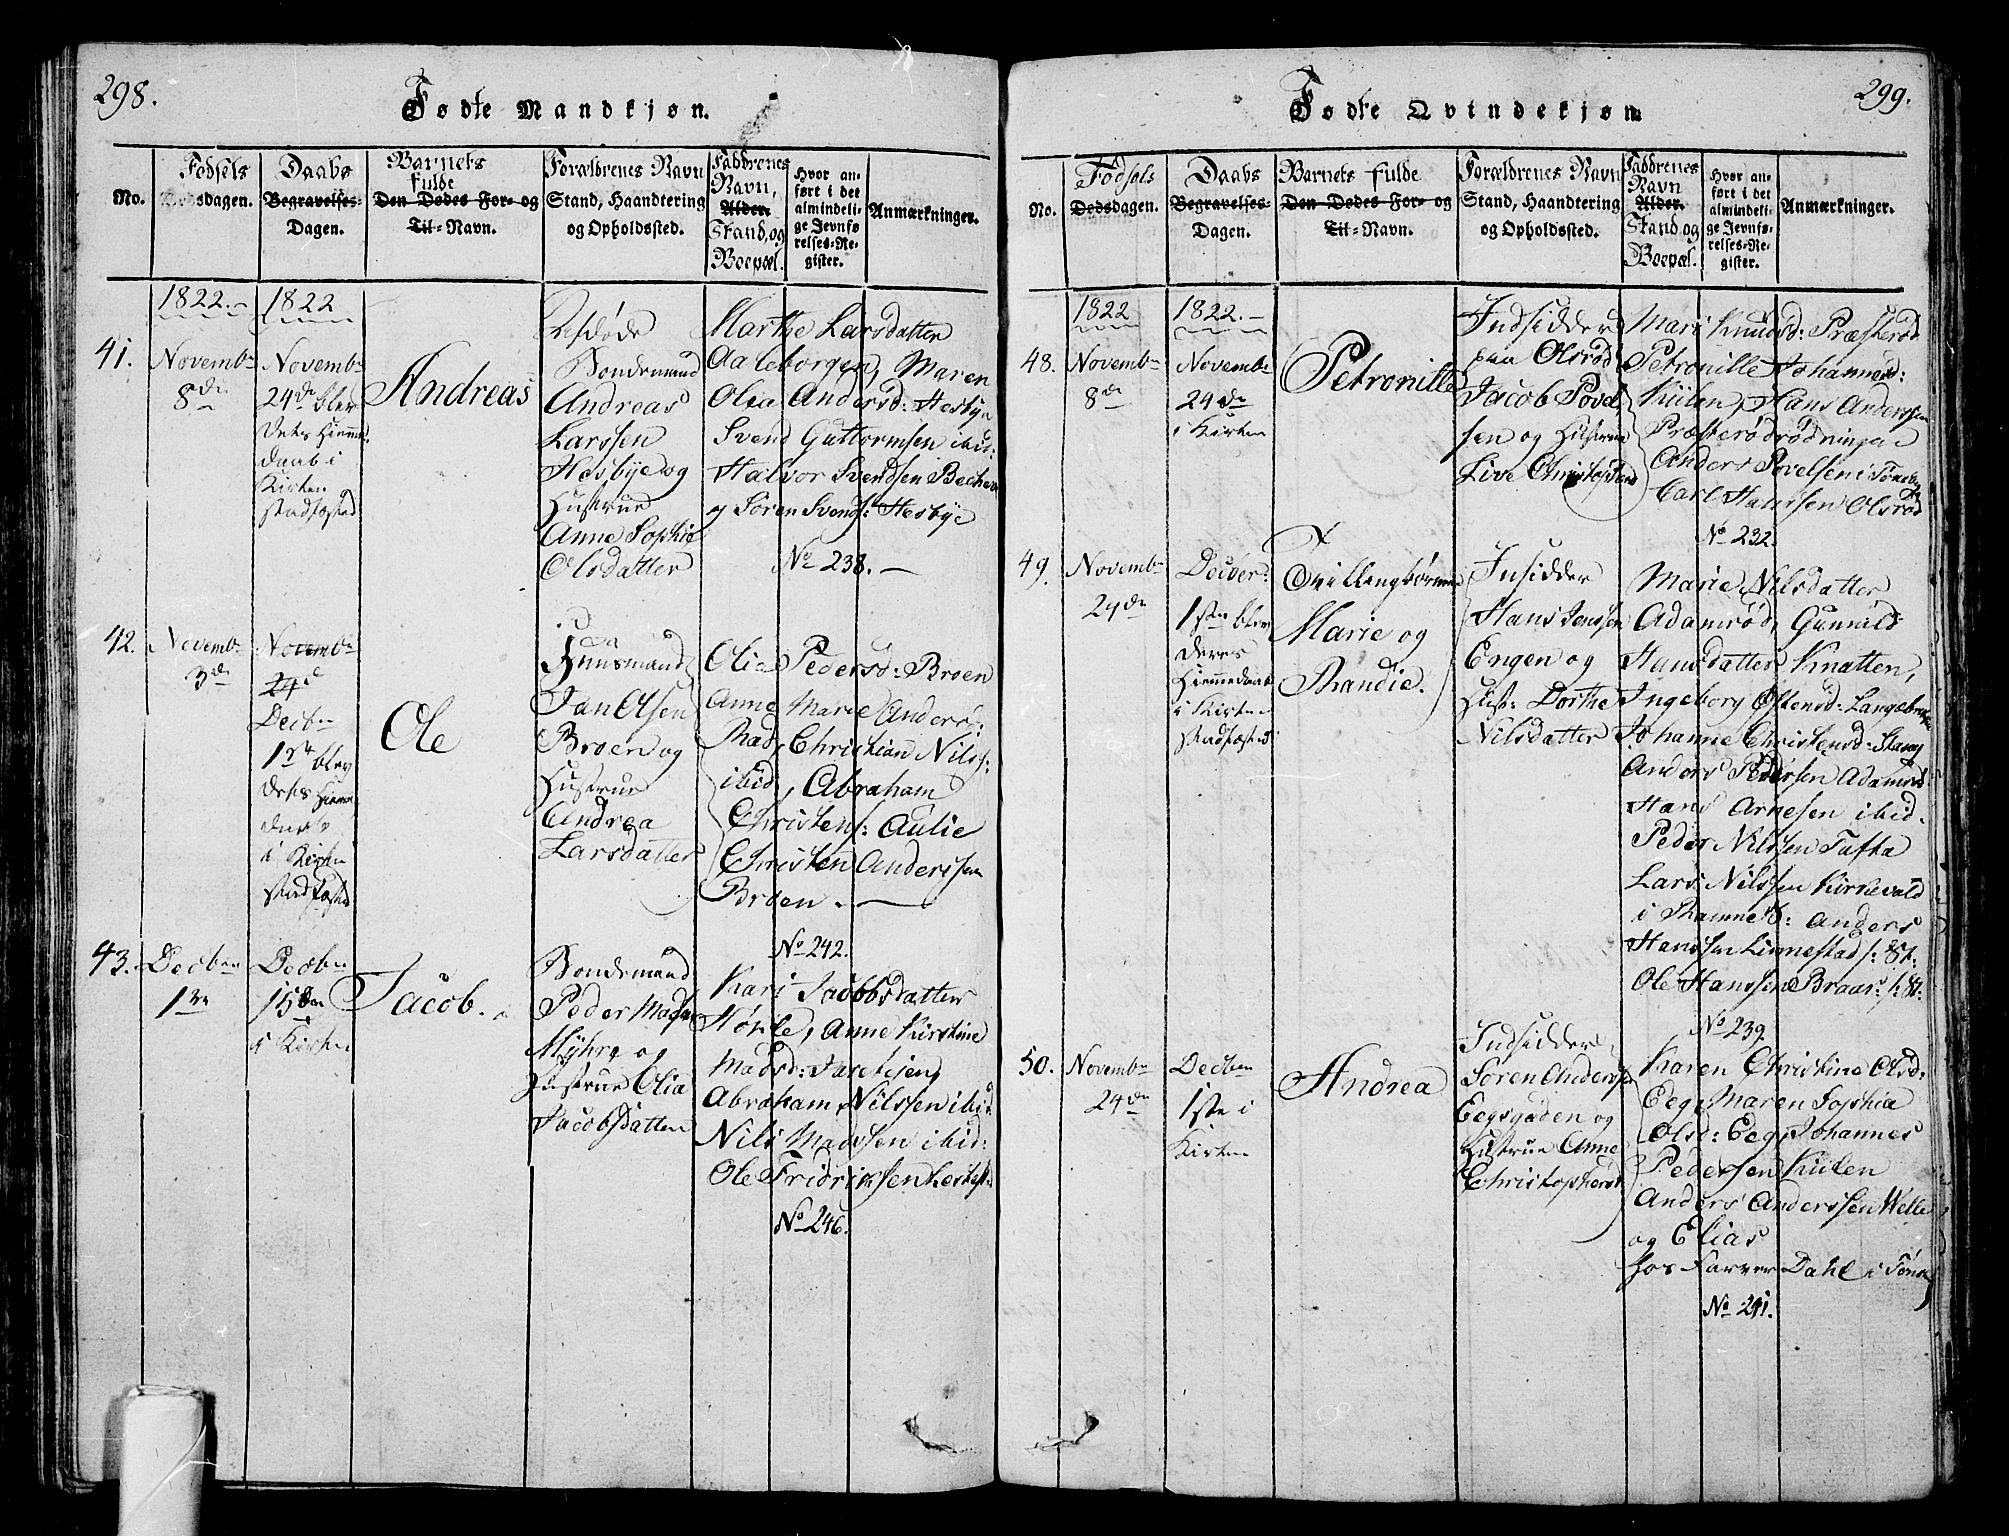 298.
Fødte Mandkjøn.
No.
Fødsels
Dødsdagen.
Daabs
Begravelses-
Dagen.
Barnets
fulde
Den Dødes For- og
Til-Navn.
Forældrenes Navn
Stand, Haandtering
og Opholdssted.
Faddrenes
Navn,
Alder.
Stand, og
Boepæl.
Hvor an-
ført i det
almindeli-
ge Jevnfø-
relses-Re-
gister.
Anmærkninger.
1822.
1822
41.
Novembr
8de
Novembr
24de blev
dets Hiemme
daab i
Kirken
stadfæsted
Andreas
Afdøde
Bondemand
Andreas
Larssen
Hesbye og
Hustrue
Anne Sophie
Olsdatter
Marthe Larsdatter
Aaleborgen, Maren
Olia Andersd: Hesbye
Svend Guttormsen ibid:
Halvor Svendsen
og Søren Svends: Hesbye
No 238.
42.
Novembr
3de
Novembr
24d
Decbr
1ste blev
dets Hiemme
daab
i Kirken
stadfæsted
Ole
Huusmand
Jan Olsen
Broen og
Hustrue
Andrea
Larsdatter
Olia Pedersd: Broen
Anne Marie Anders:
Rad, Christian Nilss:
ibid, Abraham
Christens: Aulie
Christen Anderssen
Broen.
No 242.
43.
Decbr
1ste
Decbr
15de
i Kirken
Jacob.
Bondemand
Peder Madsen
Myhre og
Hustrue Olia
Jacobsdatter
Kari Jacobsdatter
Hørle, Anne Kirstine
Madsd: Jareteien
Abraham Nilssen ibid
Nils Madssen ibid:
Ole Fridrikssen
No 246.
299.
Fødte Qvindekjøn
No.
Fødsels
Dødsdagen.
Daabs
Begravelses-
Dagen.
Barnets fulde
Den Dødes For- og
Til-Navn.
Forældrenes Navn
Stand, Haandtering
og Opholdssted.
Faddrenes
Navn
Alder.
Stand og
Boepæl.
Hvor an-
ført i det
almindeli-
ge Jevnfø-
relses-Re-
gister.
Anmærkninger.
1822
1822.
48.
Novembr
8de
Novembr
24de
i Kirken
Petronille
Indsidder
paa Olsrød
Jacob Povel
sen og Hustrue
Live Christophersd
Mari Knudsd: Præsterød
Petronille Johannesd:
Kiilen, Hans Anderssen
Præsterødrødningen
Anders Povelsen i Tønsberg
Carl Hanssen Olsrød
No 232.
49.
Novembr
24de
Decber:
1ste blev
deres
Hiemmedaab
i Kirken
stadfæsted
Tvillingbørnene
Marie og
Randie.
Insidder
Hans Jenssen
Engen og
Hust: Dorthe
Nilsdatter
Marie Nilsdatter
Adamrød, Gunnild
Hansdatter Knatten,
Ingeborg Ostensd:
Johanne Christensd:
Anders Pedersen Adamrød
Hans Arnesen ibid.
Peder Nilssen Tufta
Lars Nilssen Kirkevold
i Ramnes: Anders
Hanssen Linnestad
Ole Hanssen Braar:
No 239.
50.
Novembr
24de
Decbr
1ste i
Kirken
Andrea
Indsidder
Søren Anderss
Eegsgaden og
Hustrue Anne
Christophersd
Karen Christine Olsd:
Eeg, Maren Sophia
Olsd: Eeg, Johannes
Pedersen Kiilen
Anders Anderssen Welle
og Elias
hos Farver Dahl i Tønsb
No 241.